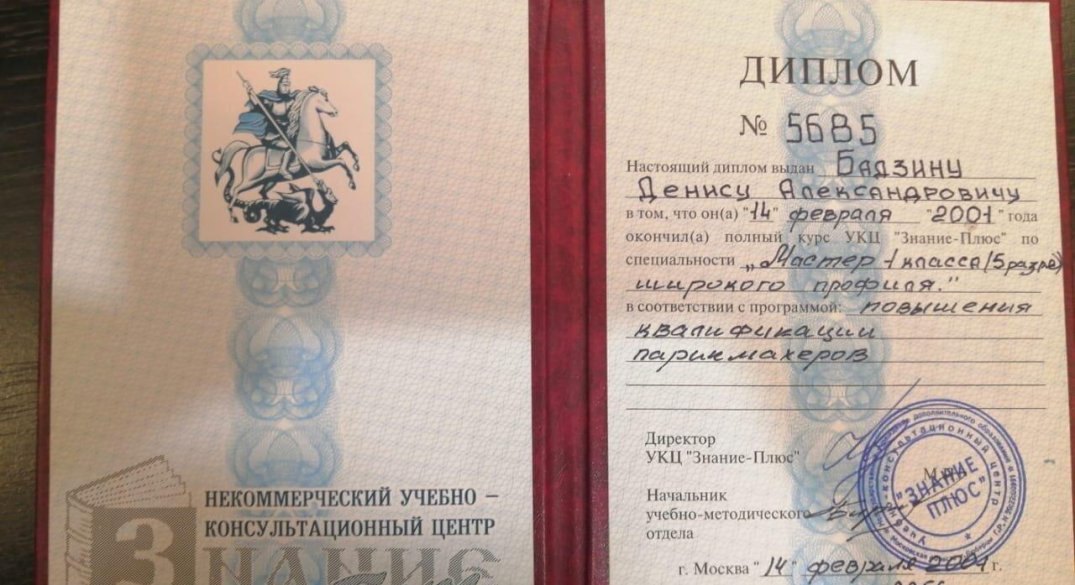 НЕКОММЕРЧЕСКИЙ УЧЕБНО –
КОНСУЛЬТАЦИОННЫЙ ЦЕНТР
ЗНАНИЕ
ДИПЛОМ
№ 5685
Настоящий диплом выдан Бадзину
Денису Александровичу
в том, что он(а) "14" февраля "2001" года
окончил(а) полный курс УКЦ "Знание-Плюс" по
специальности „Мастер-1 класса (5 разря)
широкого профиля."
в соответствии с программой: повышения
квалификации
парикмахеров
Директор
УКЦ "Знание-Плюс"
М.П.
Начальник
учебно-методического
отдела
г. Москва "14" февраля 2001 г.
"ЗНАНИЕ
ПЛЮС"